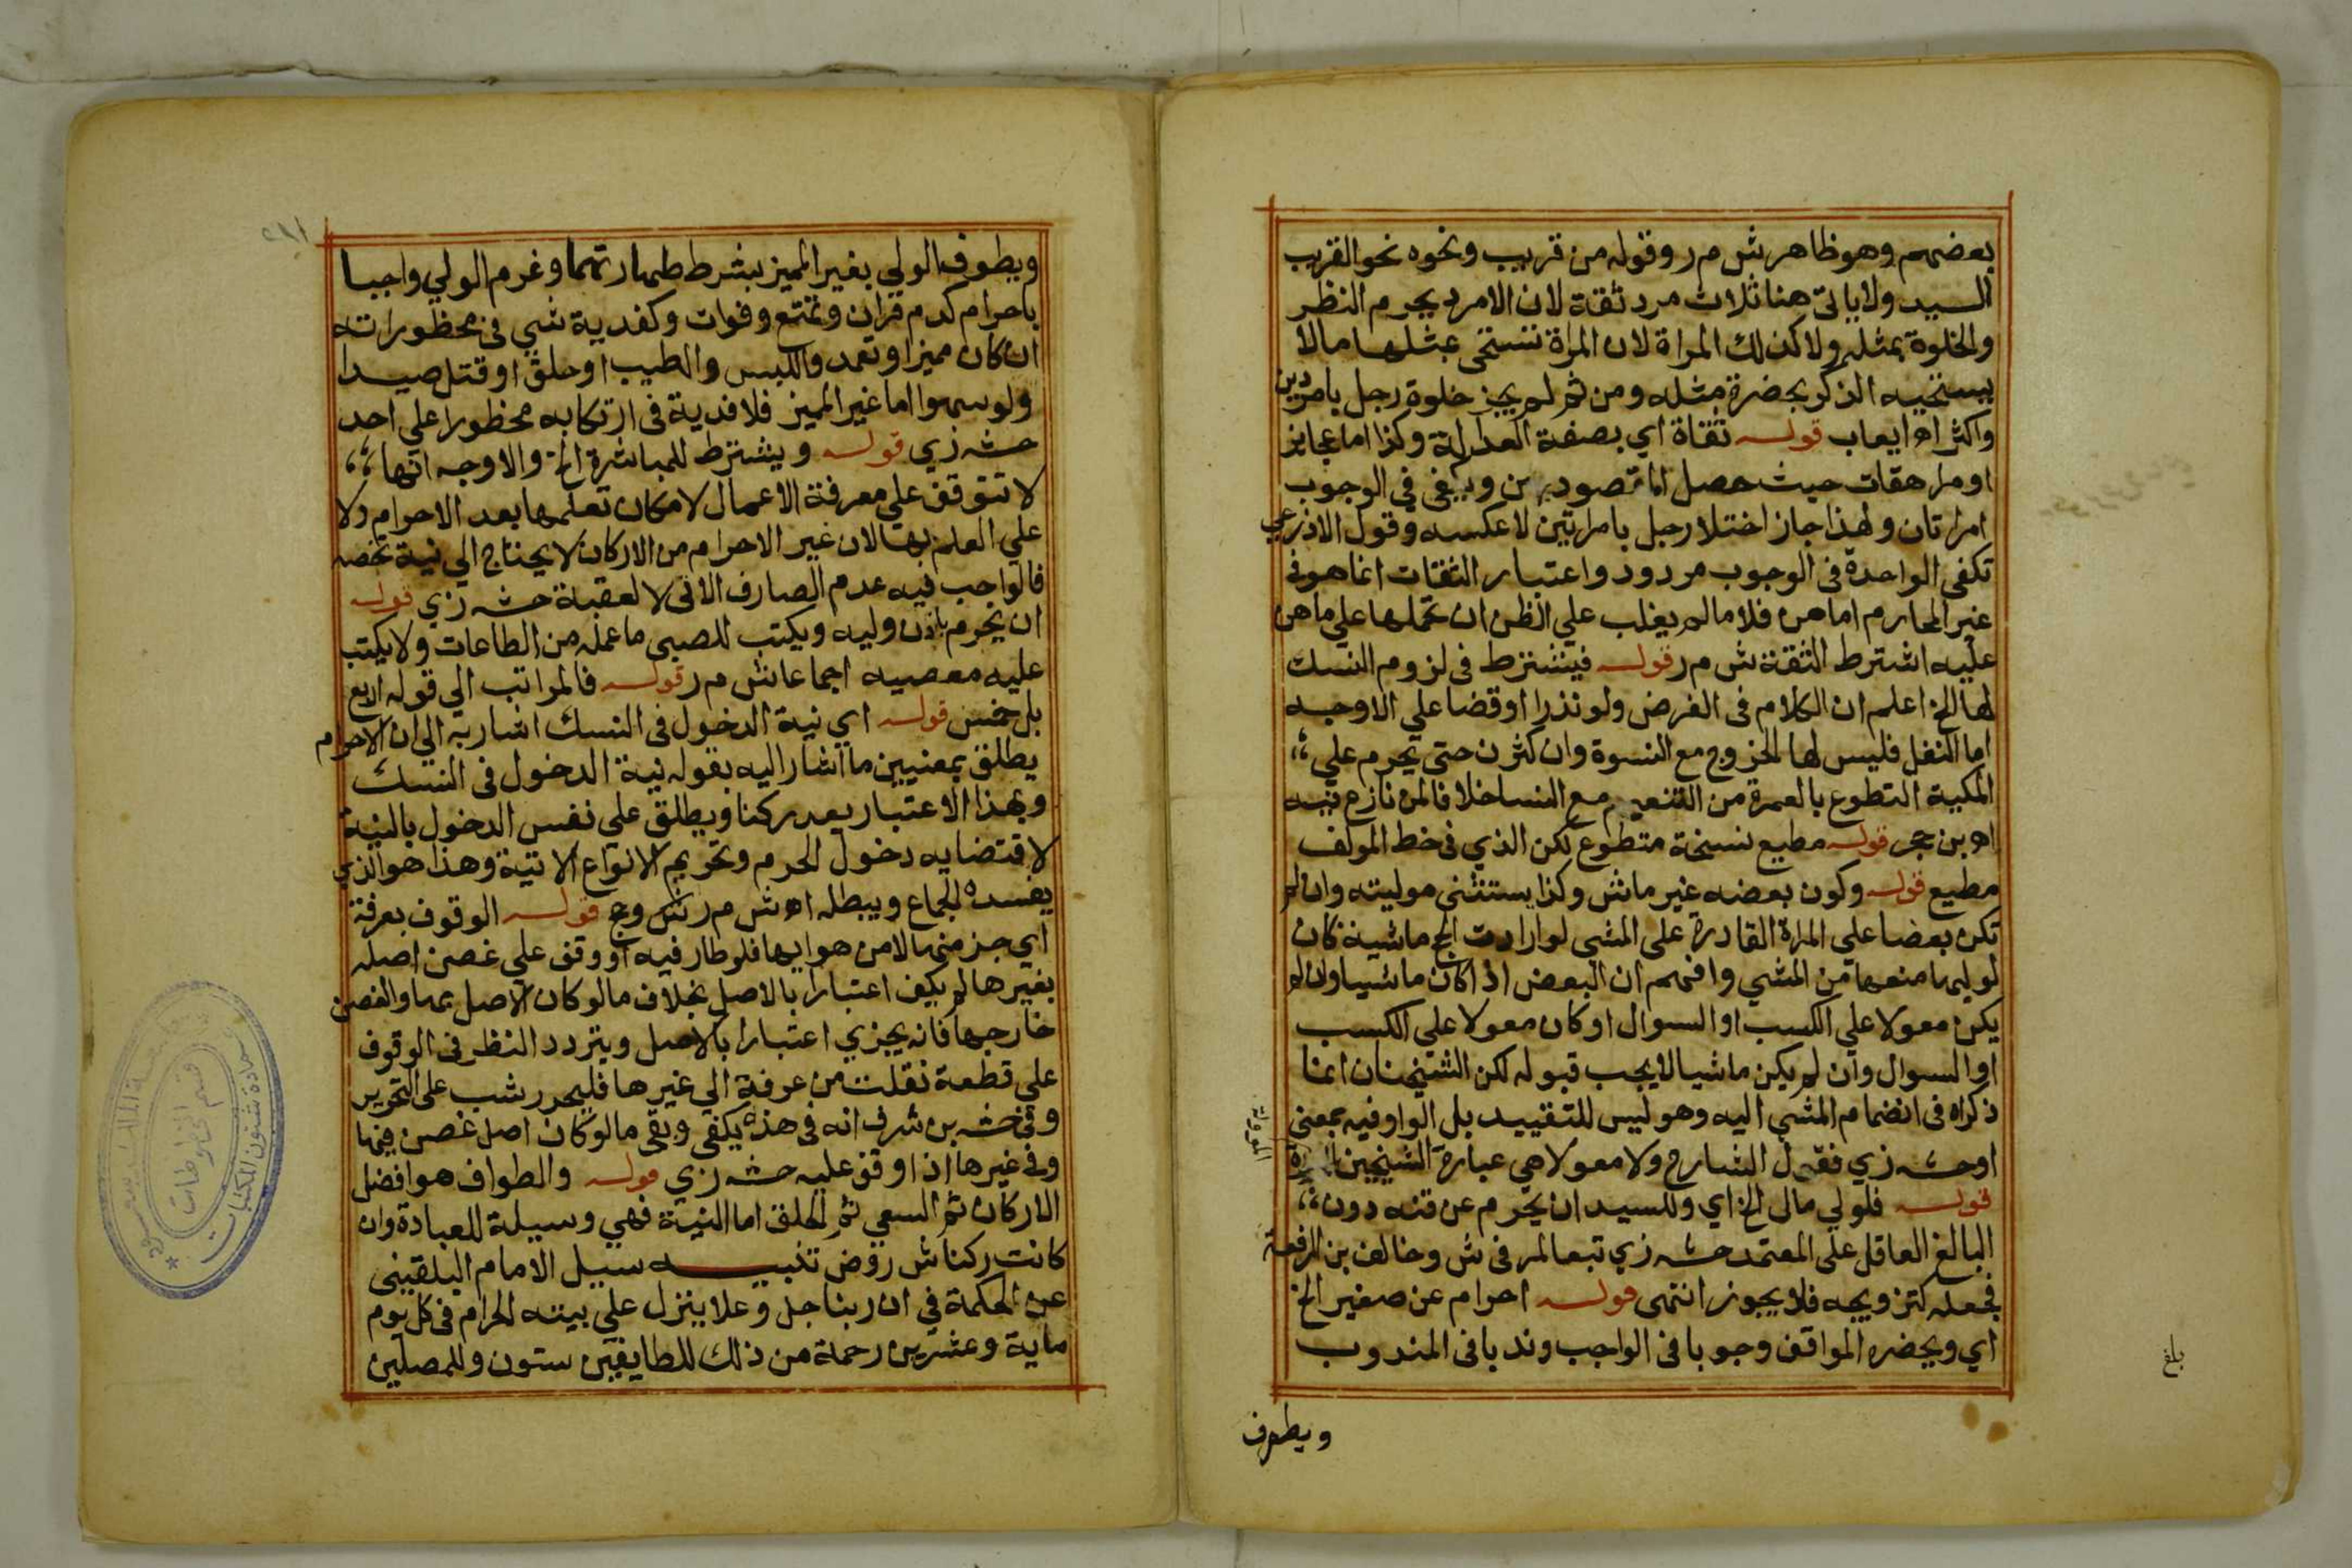 بعضهم وهو ظاهر ش م ر وقوله من قريب ونحوه نحو القريب
السيد ولا ياتي هنا ثلاث مرد ثقة لان الامرد يحرم النظر
والخلوة بمثله ولا كذلك المراة لان المراة تستحي بمثلها مالا
يستحييه الذكر بحضرة مثله ومن ثم لم يجز خلوة رجل بامردين
واكثر اه ايعاب قوله ثقاة اي بصفة العدالة وكذا اما عجايز
او مراهقات حيث حصل ويكفي في الوجوب
امراتان ولهذا جاز اختلا رجل بامراتين لا عكسه وقول الاذرعي
تكفي الواحدة في الوجوب مردود واعتبار الثقات انما هو في
غير المحارم اما هن فلا مالم يغلب علي الظن ان تحملها علي ما هن
عليه اشترط الثقة ش م ر قوله فيشترط في لزوم النسك
لها الخ اعلم ان الكلام في الفرض ولو نذرا او قضا علي الاوجه
اما النفل فليس لها الخروج مع النسوة وان كثرن حتي يحرم علي
المكية التطوع بالعمرة من التنعيم مع النسا خلافا لمن نازع فيه
اه بن حجر قوله مطيع نسخة متطوع لكن الذي في خط المولف
مطيع قوله وكون بعضه غير ماش وكذا يستثني موليته وان لم
تكن بعضا علي المراة القادرة علي المشي لو ارادت الحج ماشية كان
لوليها منعها من المشي وافهم ان البعض اذا كان ماشيا وان لم
يكن معولا علي الكسب او السوال او كان معولا علي الكسب
او السوال وان لم يكن ماشيا لا يجب قبوله لكن الشيخان انما
ذكراه في انضمام المشي اليه وهو ليس للتقييد بل الواو فيه بمعني
او حشه زي فقول الشارح ولا معولا هي عبارة الشيخين
قوله فلولي مال الخ اي وللسيد ان يحرم عن قنه دون
البالغ العاقل علي المعتمد حشه زي تبعا لمر في ش وخالف بن الرفعة
فجعله كتزويجه فلا يجوز انتهى قوله احرام عن صغير الخ
اي ويحضره المواقف وجوبا في الواجب وندبا في المندوب
ويطوف
بلغ
ويطوف الولي بغير المميز بشرط طهارتهما وغرم الولي واجبا
باحرام كدم قران وتمتع وفوات وكفدية شي في محظوراته
ان كان مميزا وتعمد واللبس والطيب او حلق او قتل صيدا
ولو سهوا اما غير المميز فلا فدية في ارتكابه محظورا علي احد
حشه زي قوله ويشترط للمباشرة الخ والاوجه انها
لا تتوقف علي معرفة الاعمال لامكان تعلمها بعد الاحرام ولا
علي العلم بها لان غير الاحرام من الاركان لا يحتاج الي نية تخصه
فالواجب فيه عدم الصارف الاتي لا لعقبة حشه زي قوله
ان يحرم باذن وليه ويكتب للصبي ما عمله من الطاعات ولا يكتب
عليه معصيه اجماعا ش م ر قوله فالمراتب الي قوله اربع
بل خمس قوله اي نية الدخول في النسك اشار به الي ان الاحرام
يطلق بمعنيين ما اشار اليه بقوله نية الدخول في النسك
وبهذا الاعتبار يعد ركنا ويطلق علي نفس الدخول بالنية
لاقتضايه دخول الحرم وتحريم الانواع الاتية وهذا هو الذي
يفسده الجماع ويبطله اه ش م ر ش وحج قوله الوقوف بعرفة
اي جز منها لا من هوايها فلو طار فيه او وقف علي غصن اصله
بغيرها لم يكف اعتبارا بالاصل بخلاف ما لو كان الاصل بها والغصن
خارجها فانه يجزي اعتبارا بالاصل ويتردد النظر في الوقوف
علي قطعة نقلت من عرفة الي غيرها فليحرر شب علي التحرير
وفي حشه بن شرف انه في هذه يكفي وبقي ما لو كان اصل غصن فيها
وفي غيرها اذا وقف عليه حشه زي قوله والطواف هو افضل
الاركان ثم السعي ثم الحلق اما النية فهي وسيلة للعبادة وان
كانت ركنا ش روض تنبيه سيل الامام البلقيني
عن الحكمة في ان ربنا جل وعلا ينزل علي بيته الحرام في كل يوم
ماية وعشرين رحمة من ذلك للطايفين ستون وللمصلين
عمادة شئون المكتبات
قسم المخطوطات